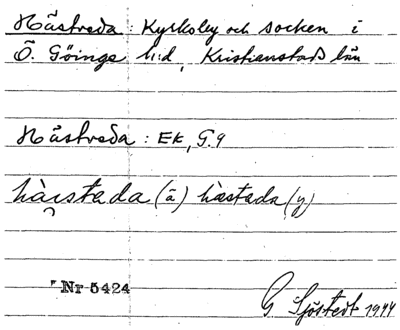 Hästveda : Kyrkoby och socken i
Ö. Göinge h:d, Kristianstads län
Hästveda : Ek, G. 9
hàrstada (ä) hæstada (y)
Nr 5424
G Sjöstedt 1944